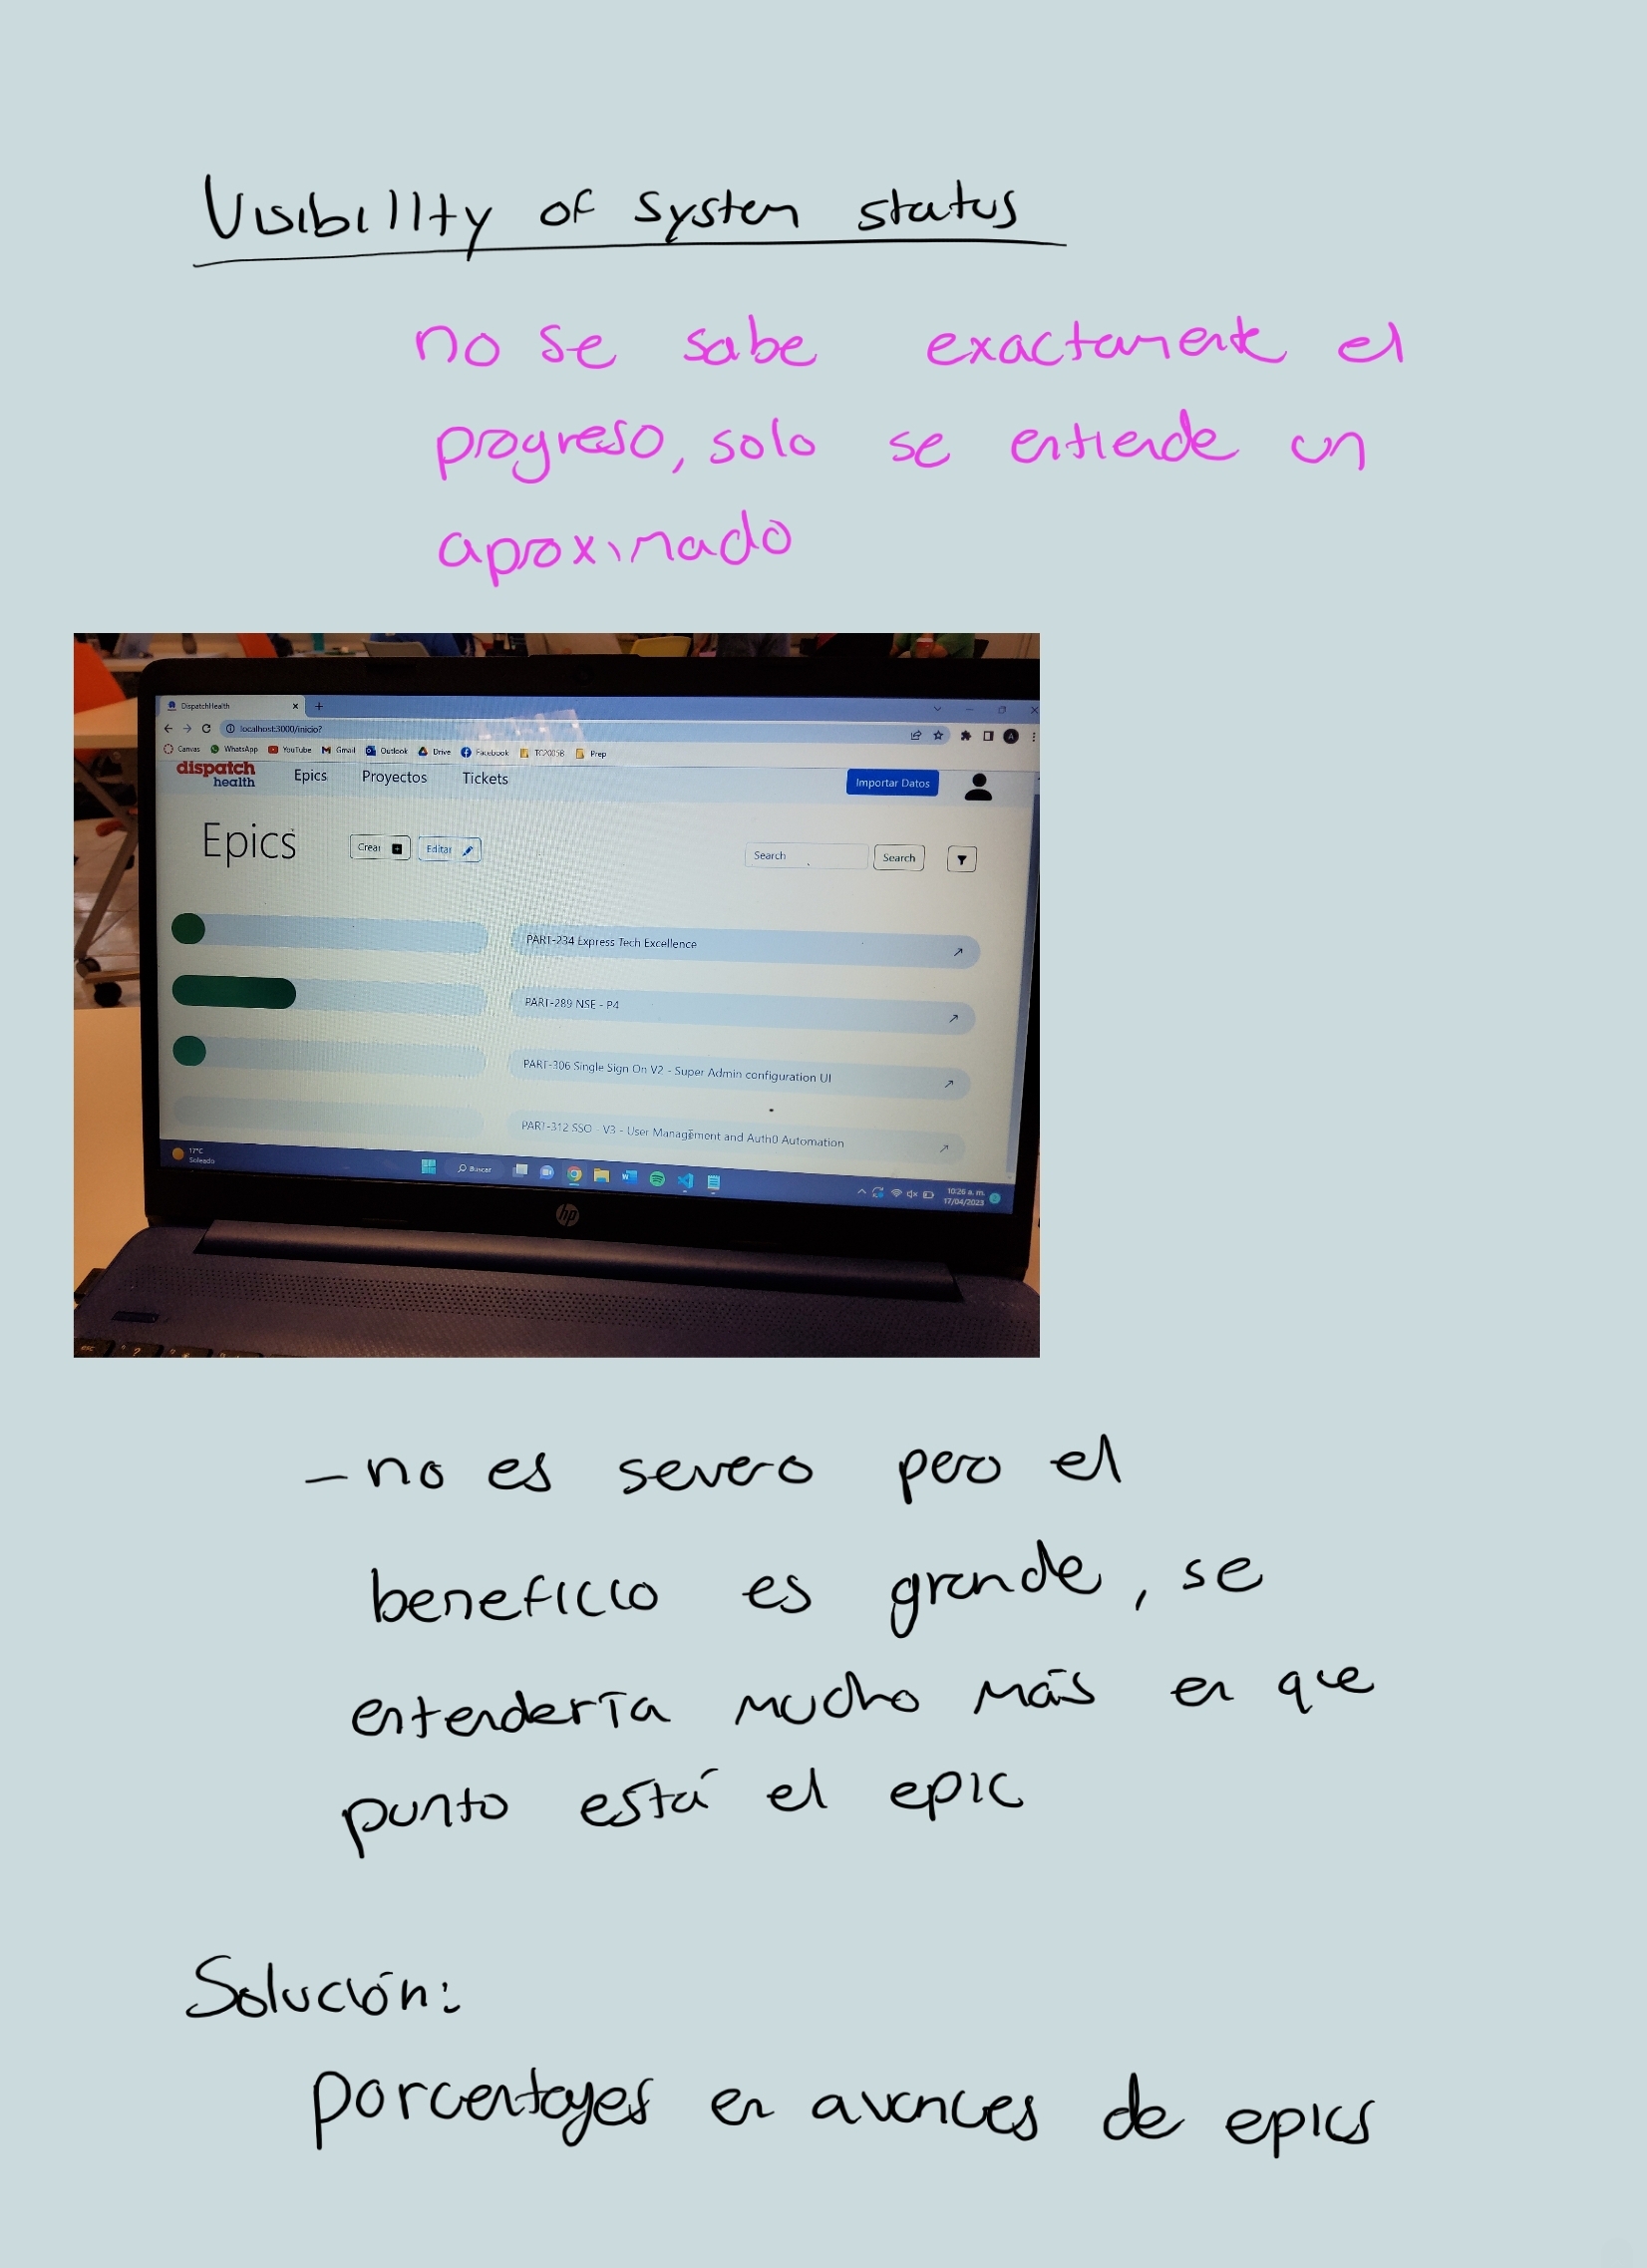 Visibility of system status
no se sabe exactamente el
progreso, solo se entiende un
aproximado
DispatchHealth
localhost:3000/inicio?
Canvas WhatsApp YouTube Gmail Outlook Drive Facebook TC2005B Prep
dispatch
health
Epics Proyectos Tickets
Importar Datos
Epics
Crear Editar
Search Search
PART-234 Express Tech Excellence
PART-289 NSE - P4
PART-306 Single Sign On V2 - Super Admin configuration UI
PART-312 SSO - V3 - User Management and Auth0 Automation
17°C
Soleado
Buscar
10:26 a. m.
17/04/2023
hp
esc
- no es severo pero el
beneficio es grande, se
entendería mucho más en que
punto está el epic
Solución:
porcentajes en avances de epics